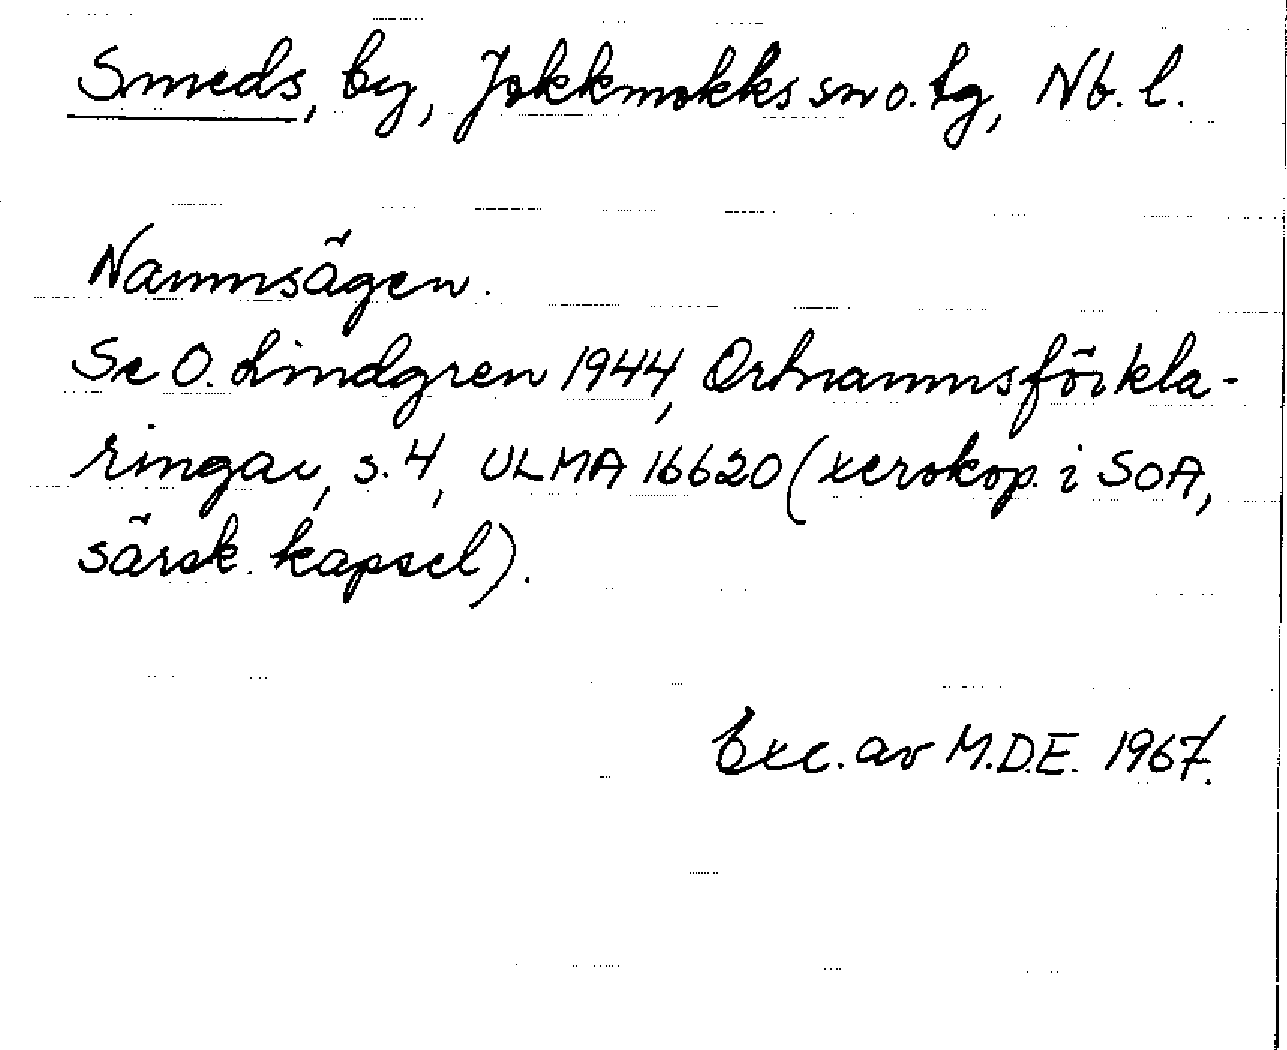 Smeds, by, Jokkmokks sn o. tg, Nb. l.
Namnsägen.
Se O. Lindgren 1944, Ortnamnsförkla-
ringar, s. 4, ULMA 16620 (xerokop. i SOA,
särsk. kapsel).
Exc. av M.D.E. 1967.